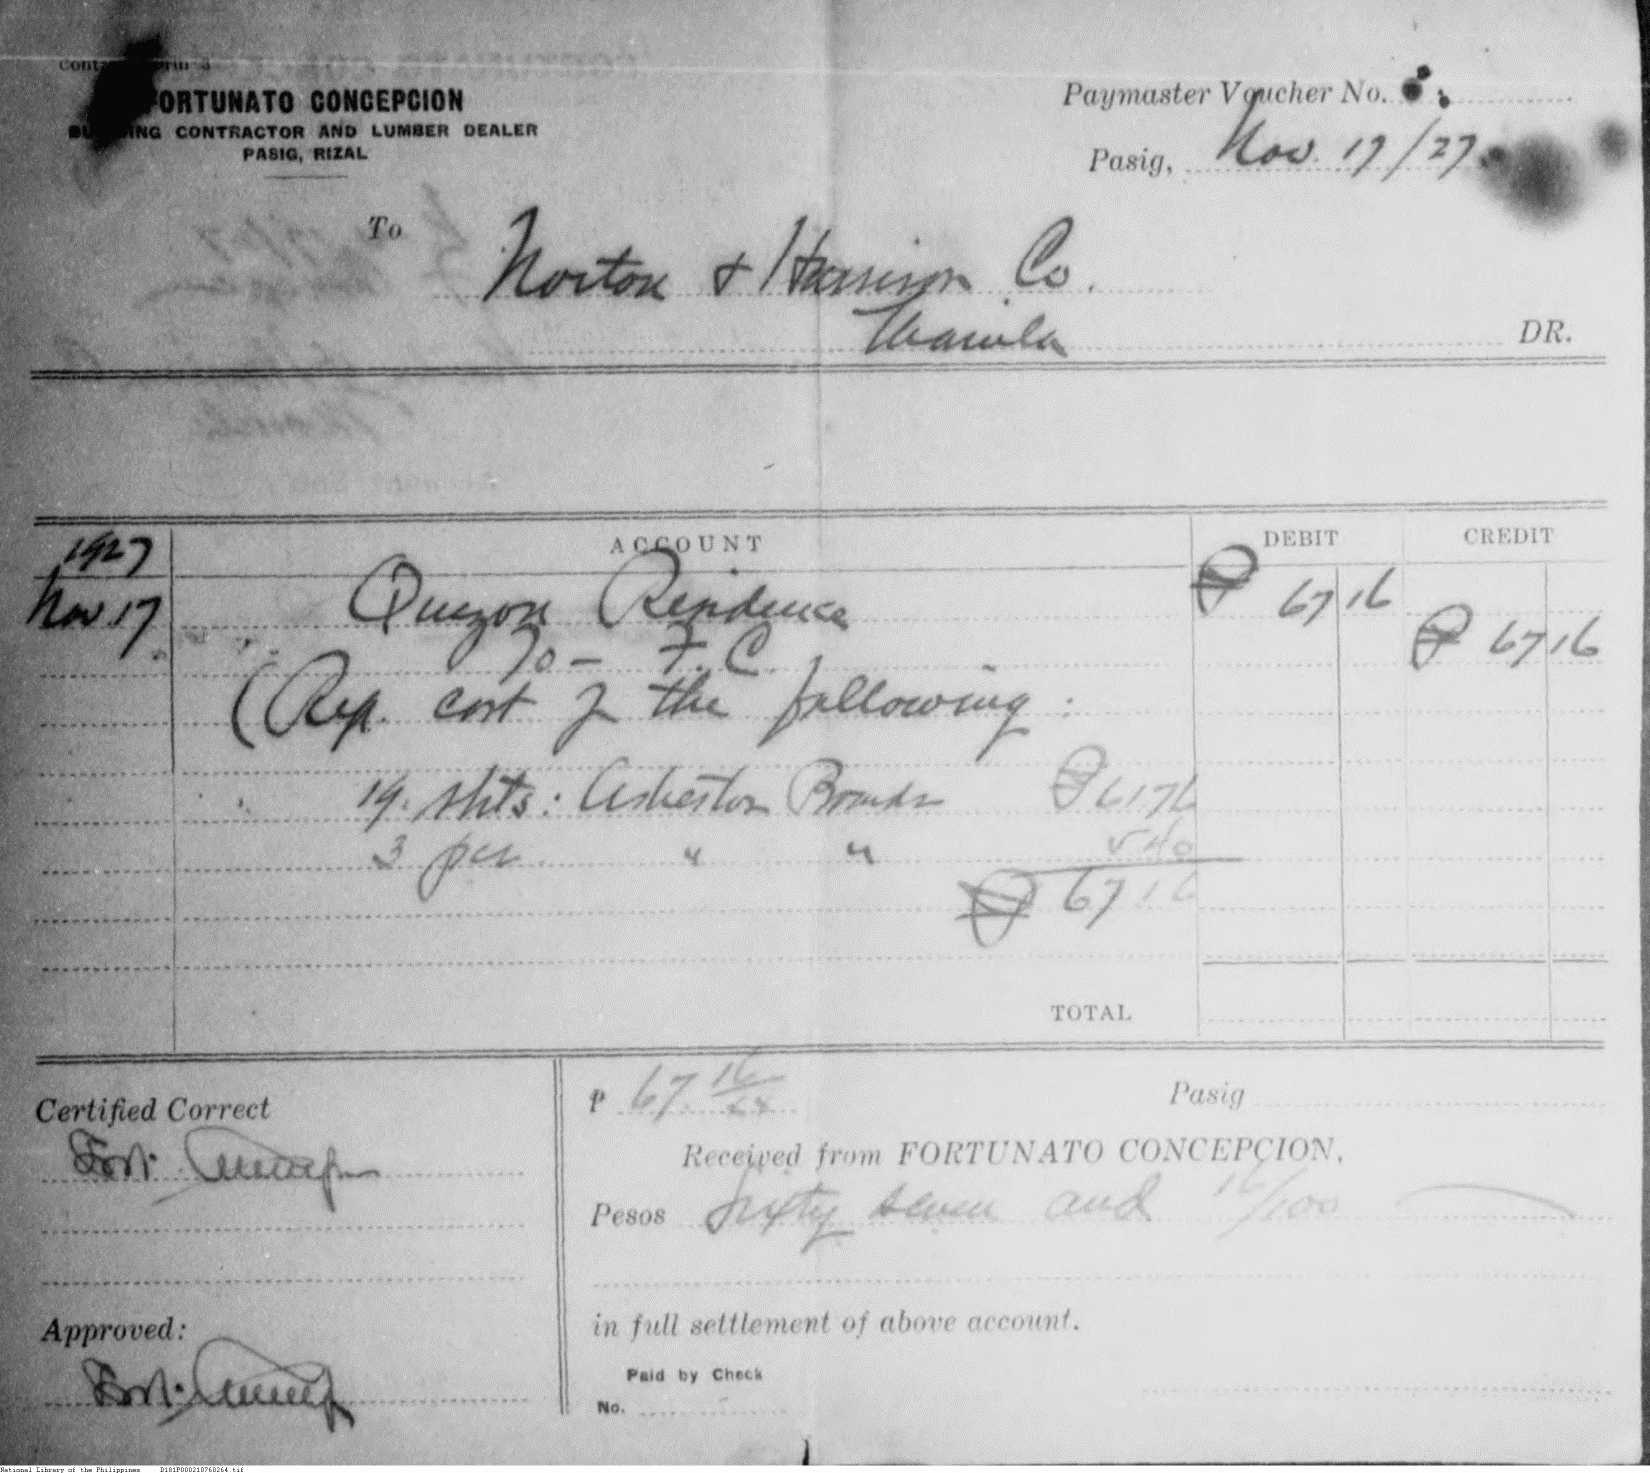 FORTUNATO CONCEPCION
BUILDING CONTRACTOR AND LUMBER DEALER
PASIG, RIZAL
Paymaster Voucher No.
Pasig, Nov. 17/27
To Norton & Harrison Co.
Manila DR.
1927 ACCOUNT DEBIT CREDIT
Nov. 17 Quezon Residence ₱ 67 16
To — F. C. ₱ 67 16
(Rep. cost of the following:
19 shts: Asbestos Boards ₱ 61 76
3 pcs. " " 5 40
₱ 67 16
TOTAL
Certified Correct
Fort. Concepcion
Approved:
Fort. Concepcion
₱ 67 16/xx Pasig
Received from FORTUNATO CONCEPCION,
Pesos Sixty seven and 16/100
in full settlement of above account.
Paid by Check
No.
National Library of the Philippines D181P000210760264.tif